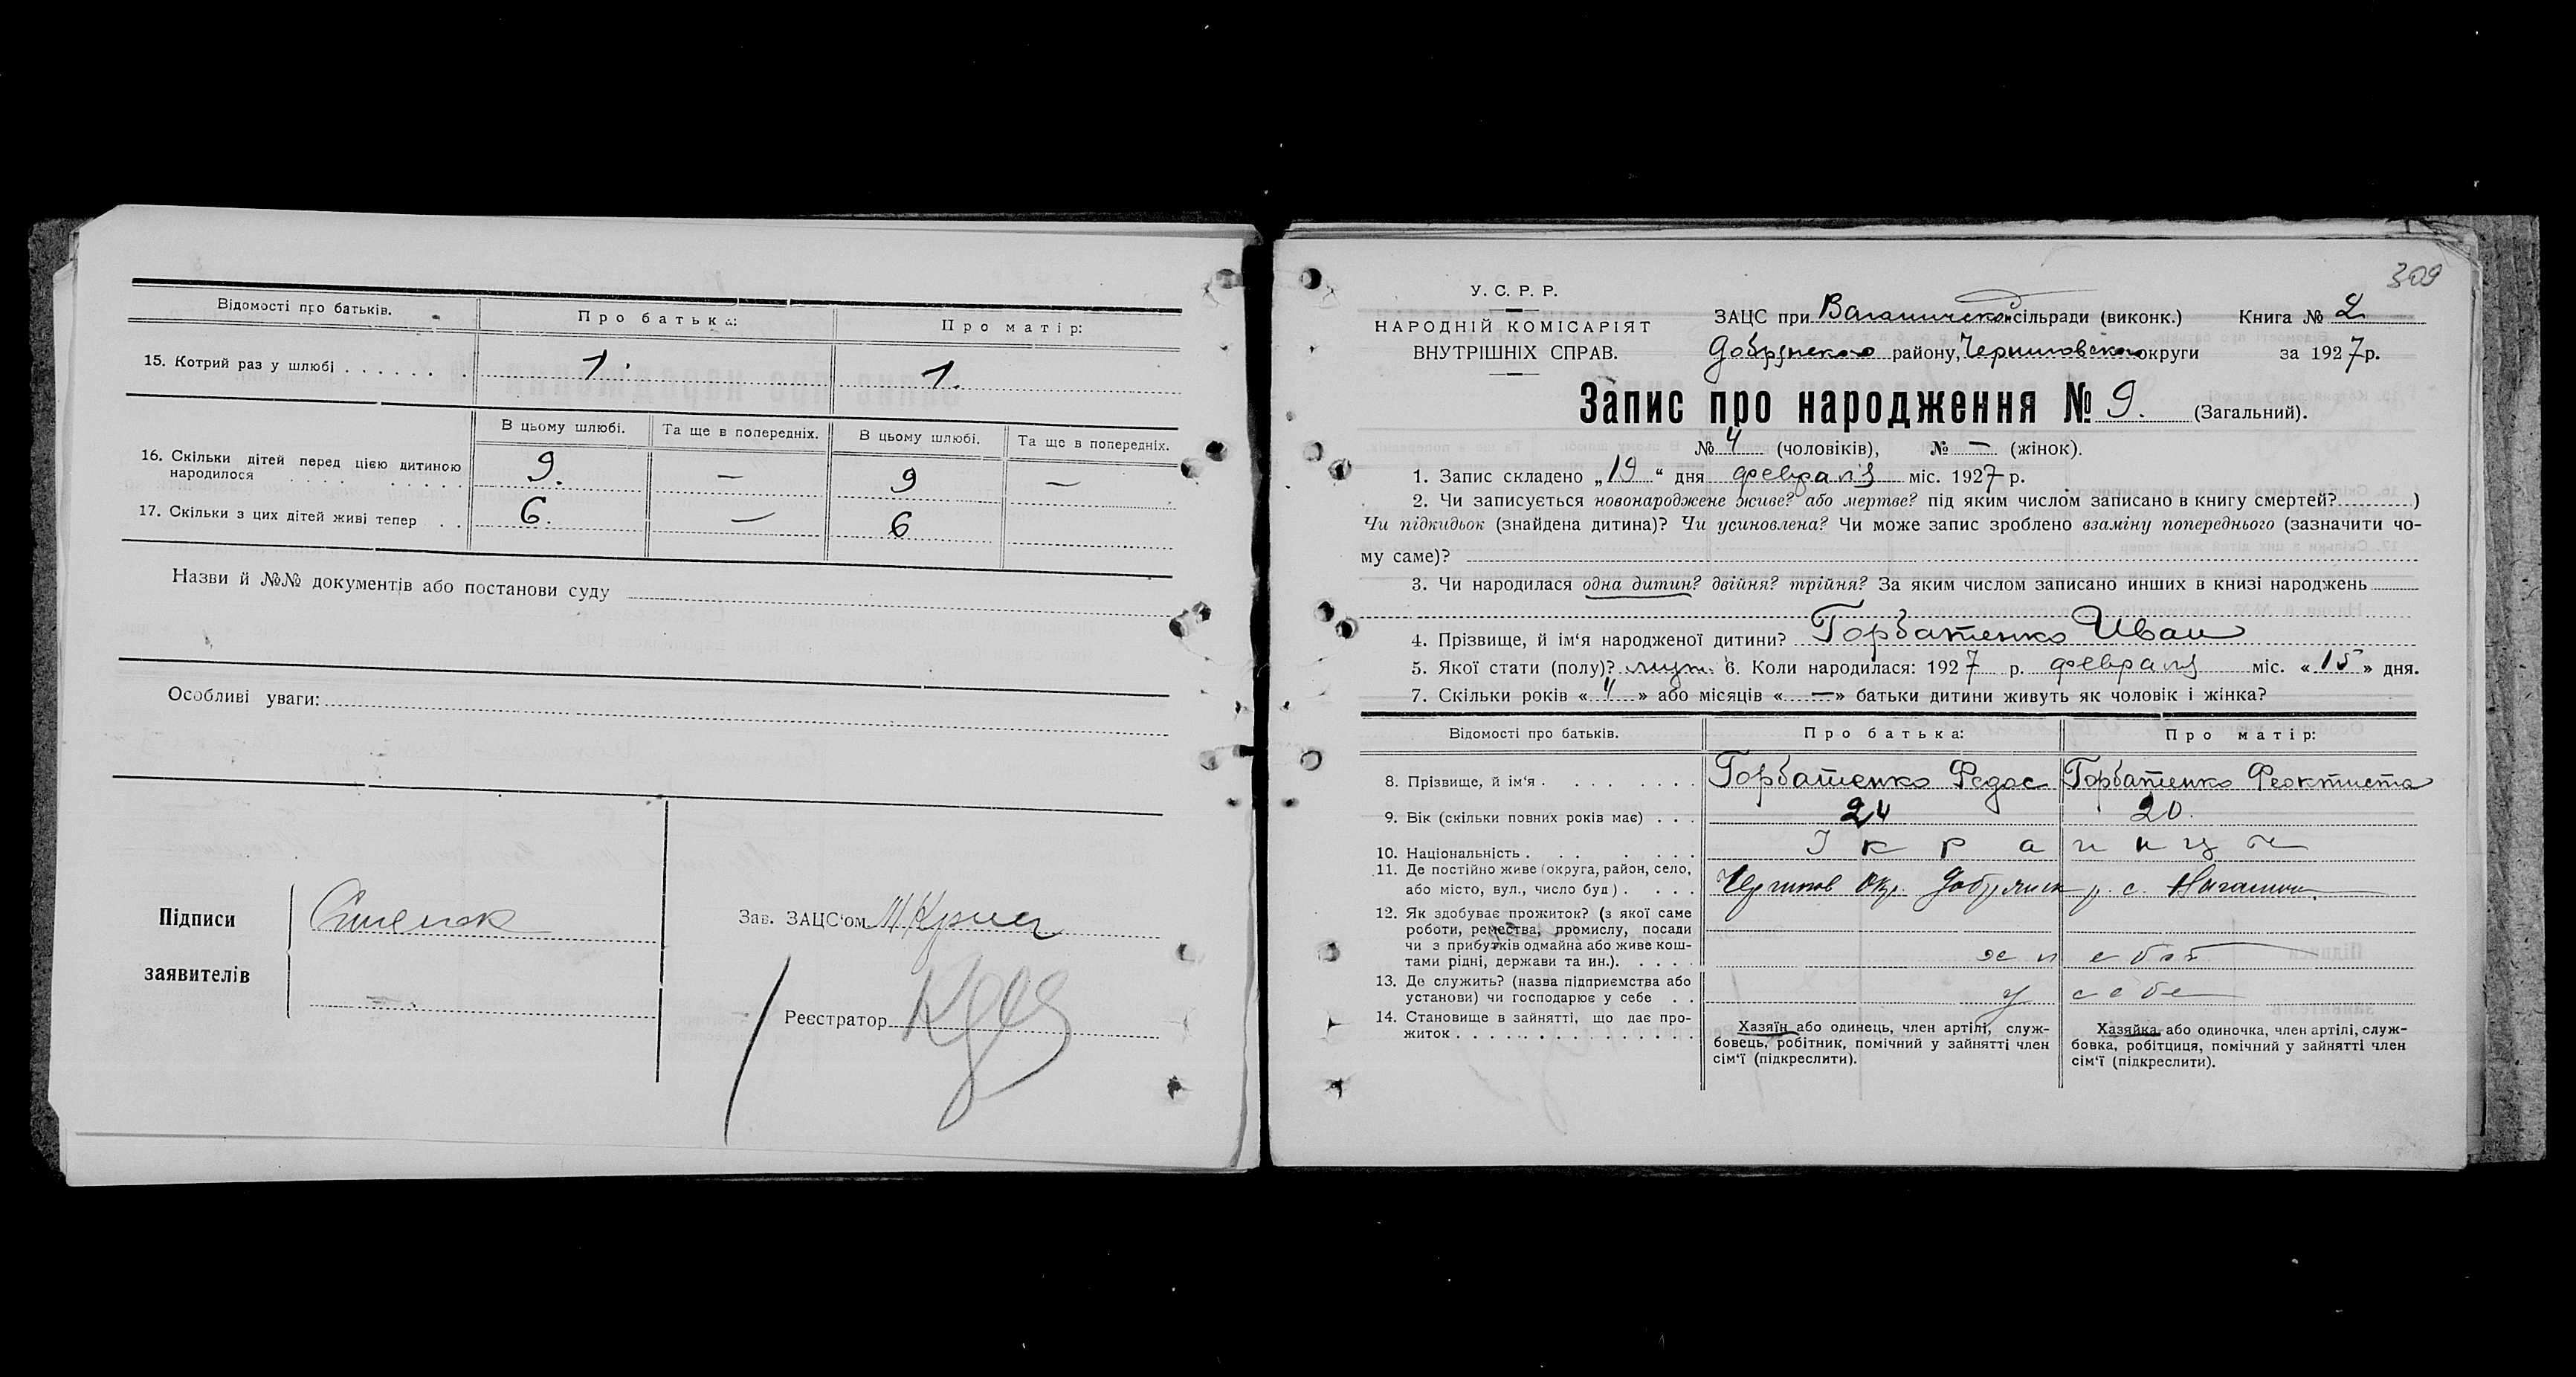 Відомості про батьків. Про батька: Про матір:
15. Котрий раз у шлюбі . . . . . . . 1. 1.
В цьому шлюбі. Та ще в попередніх. В цьому шлюбі. Та ще в попередніх.
16. Скільки дітей перед цією дитиною
народилося . . . . . . . . . 9. — 9 —
17. Скільки з цих дітей живі тепер . . 6. — 6
Назви й №№ документів або постанови суду
Особливі уваги:
Підписи
заявителів
Зав. ЗАЦС'ом
Реєстратор
309
У. С. Р. Р.
НАРОДНІЙ КОМІСАРІЯТ
ВНУТРІШНІХ СПРАВ.
ЗАЦС при сільради (виконк.) Книга № 2
району, округи за 1927 р.
Запис про народження № 9. (Загальний).
№ 4 (чоловіків), № — (жінок).
1. Запис складено „19“ дня февраля міс. 1927 р.
2. Чи записується новонароджене живе? або мертве? під яким числом записано в книгу смертей? )
Чи підкидьок (знайдена дитина)? Чи усиновлена? Чи може запис зроблено взаміну попереднього (зазначити чо-
му саме)?
3. Чи народилася одна дитин? двійня? трійня? За яким числом записано инших в книзі народжень
4. Прізвище, й ім‘я народженої дитини? Горбатенко Иван
5. Якої стати (полу)? муж. 6. Коли народилася: 1927 р. февраля міс. «15» дня.
7. Скільки років «4» або місяців «—» батьки дитини живуть як чоловік і жінка?
Відомості про батьків. Про батька: Про матір:
8. Прізвище, й ім‘я . . . . . . Горбатенко Федос Горбатенко Феоктиста
9. Вік (скільки повних років має) . . . 24 20.
10. Національність . . . . . .
11. Де постійно живе (округа, район, село,
або місто, вул., число буд) . . . .
12. Як здобуває прожиток? (з якої саме
роботи, ремества, промислу, посади
чи з прибутків одмайна або живе кош-
тами рідні, держави та ин.). . . . .
13. Де служить? (назва підприємства або
установи) чи господарює у себе . . у себе
14. Становище в зайнятті, що дає про-
житок . . . . . . . . . . . . . . .
Хазяїн або одинець, член артілі, служ-
бовець, робітник, помічний у зайнятті член
сім‘ї (підкреслити).
Хазяйка або одиночка, член артілі, служ-
бовка, робітциця, помічний у зайнятті член
сім‘ї (підкреслити).